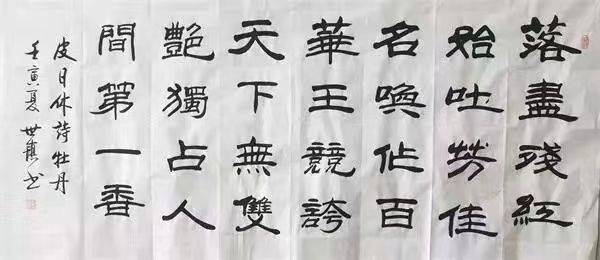 落盡殘紅
始吐芳佳
名喚作百
華王競誇
天下無雙
艷獨占人
間第一香
皮日休詩牡丹
壬寅夏 世 书